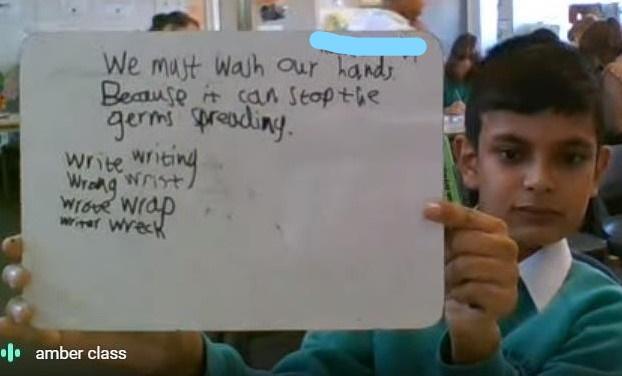 We must wash our hands.
Because it can stop the
germs spreading.
write writing
wrong wrist
wrote wrap
writer wreck
amber class